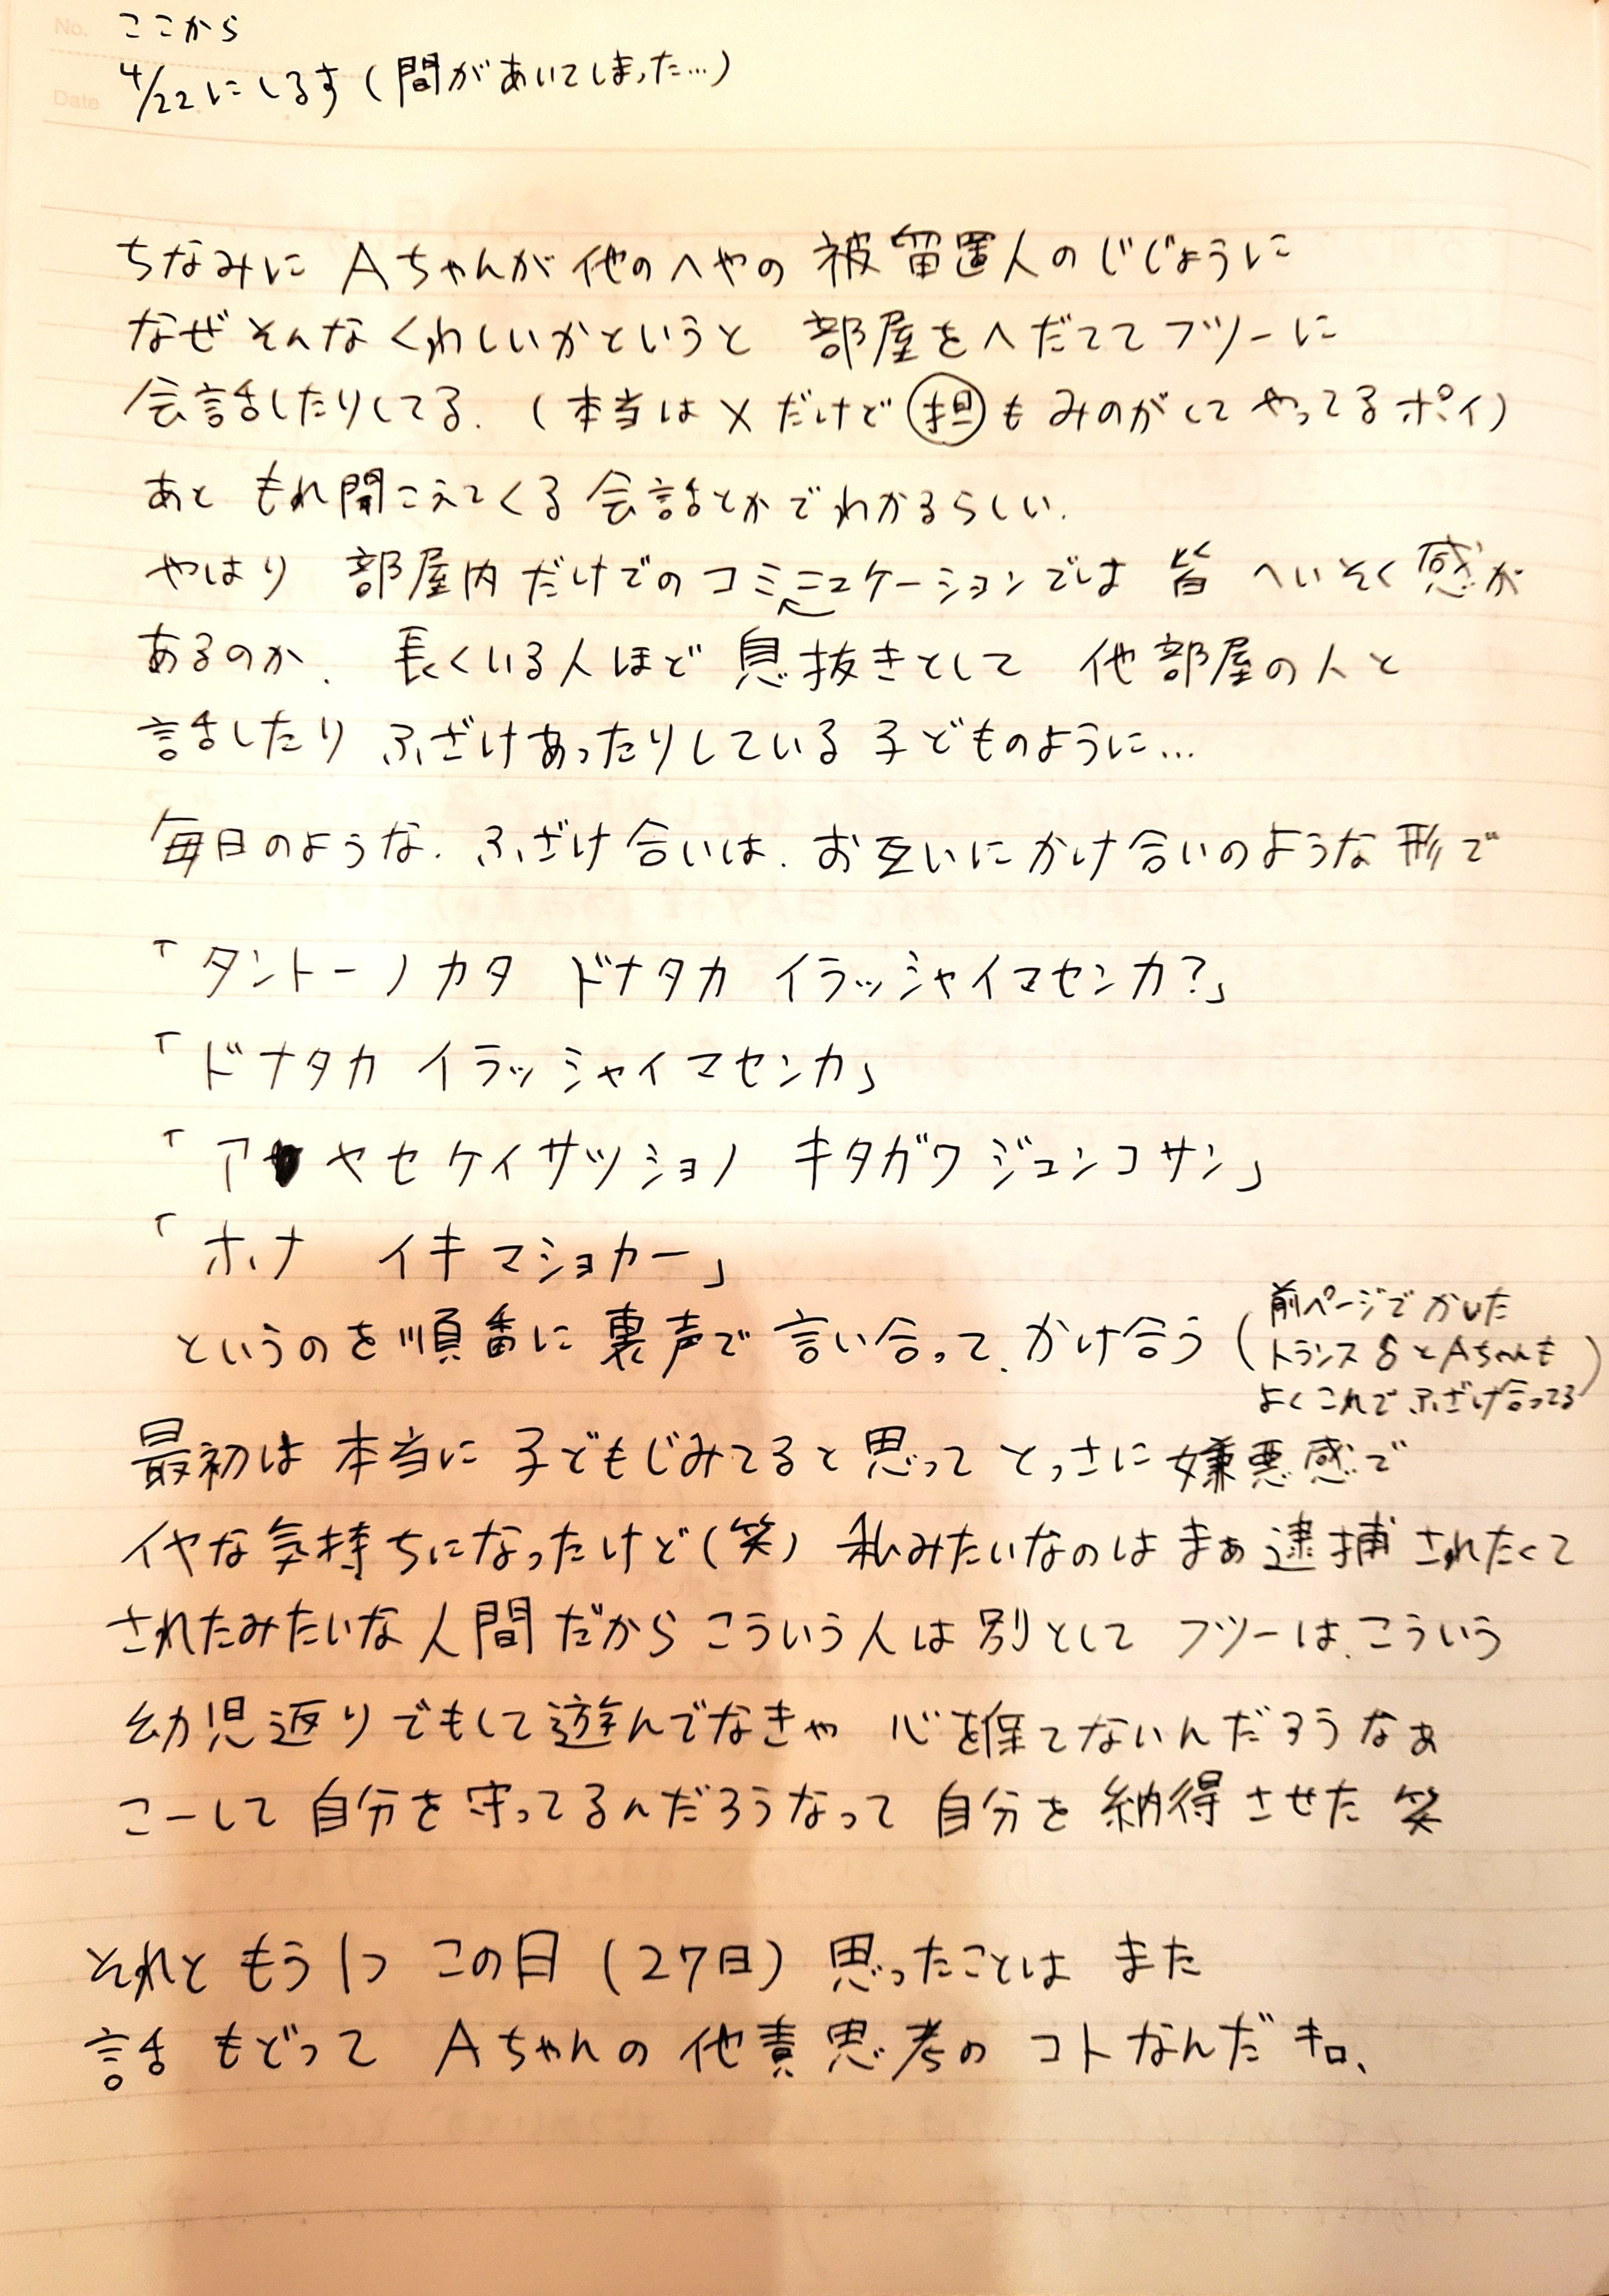 No.
ここから
Date
4/22にしるす(間があいてしまった…)
ちなみに Aちゃんが他のへやの 被留置人のじじょうに
なぜそんなくわしいかというと 部屋をへだててフツーに
会話したりしてる.(本当は×だけど 担 もみのがしてやってるポイ)
あと もれ聞こえてくる会話とかでわかるらしい.
やはり 部屋内だけでのコミニュケーションでは 皆 へいそく感が
あるのか、長くいる人ほど 息抜きとして 他部屋の人と
話したり ふざけあったりしている 子どものように…
毎日のような、ふざけ合いは、お互いにかけ合いのような形で
「タントーノカタ ドナタカ イラッシャイマセンカ?」
「ドナタカ イラッシャイマセンカ」
「アヤセケイサツショノ キタガワジュンコサン」
「ホナ イキマショカー」
というのを順番に裏声で言い合って、かけ合う(前ページでかいた
トランスδとAちゃんも
よくこれでふざけ合ってる)
最初は本当に子どもじみてると思ってとっさに嫌悪感で
イヤな気持ちになったけど(笑) 私みたいなのはまぁ逮捕されたくて
されたみたいな人間だからこういう人は別として フツーは、こういう
幼児返りでもして遊んでなきゃ 心を保てないんだろうなぁ
こーして自分を守ってるんだろうなって 自分を納得させた 笑
それともう1つ この日(27日)思ったことは また
話もどって Aちゃんの他責思考のコトなんだキロ、